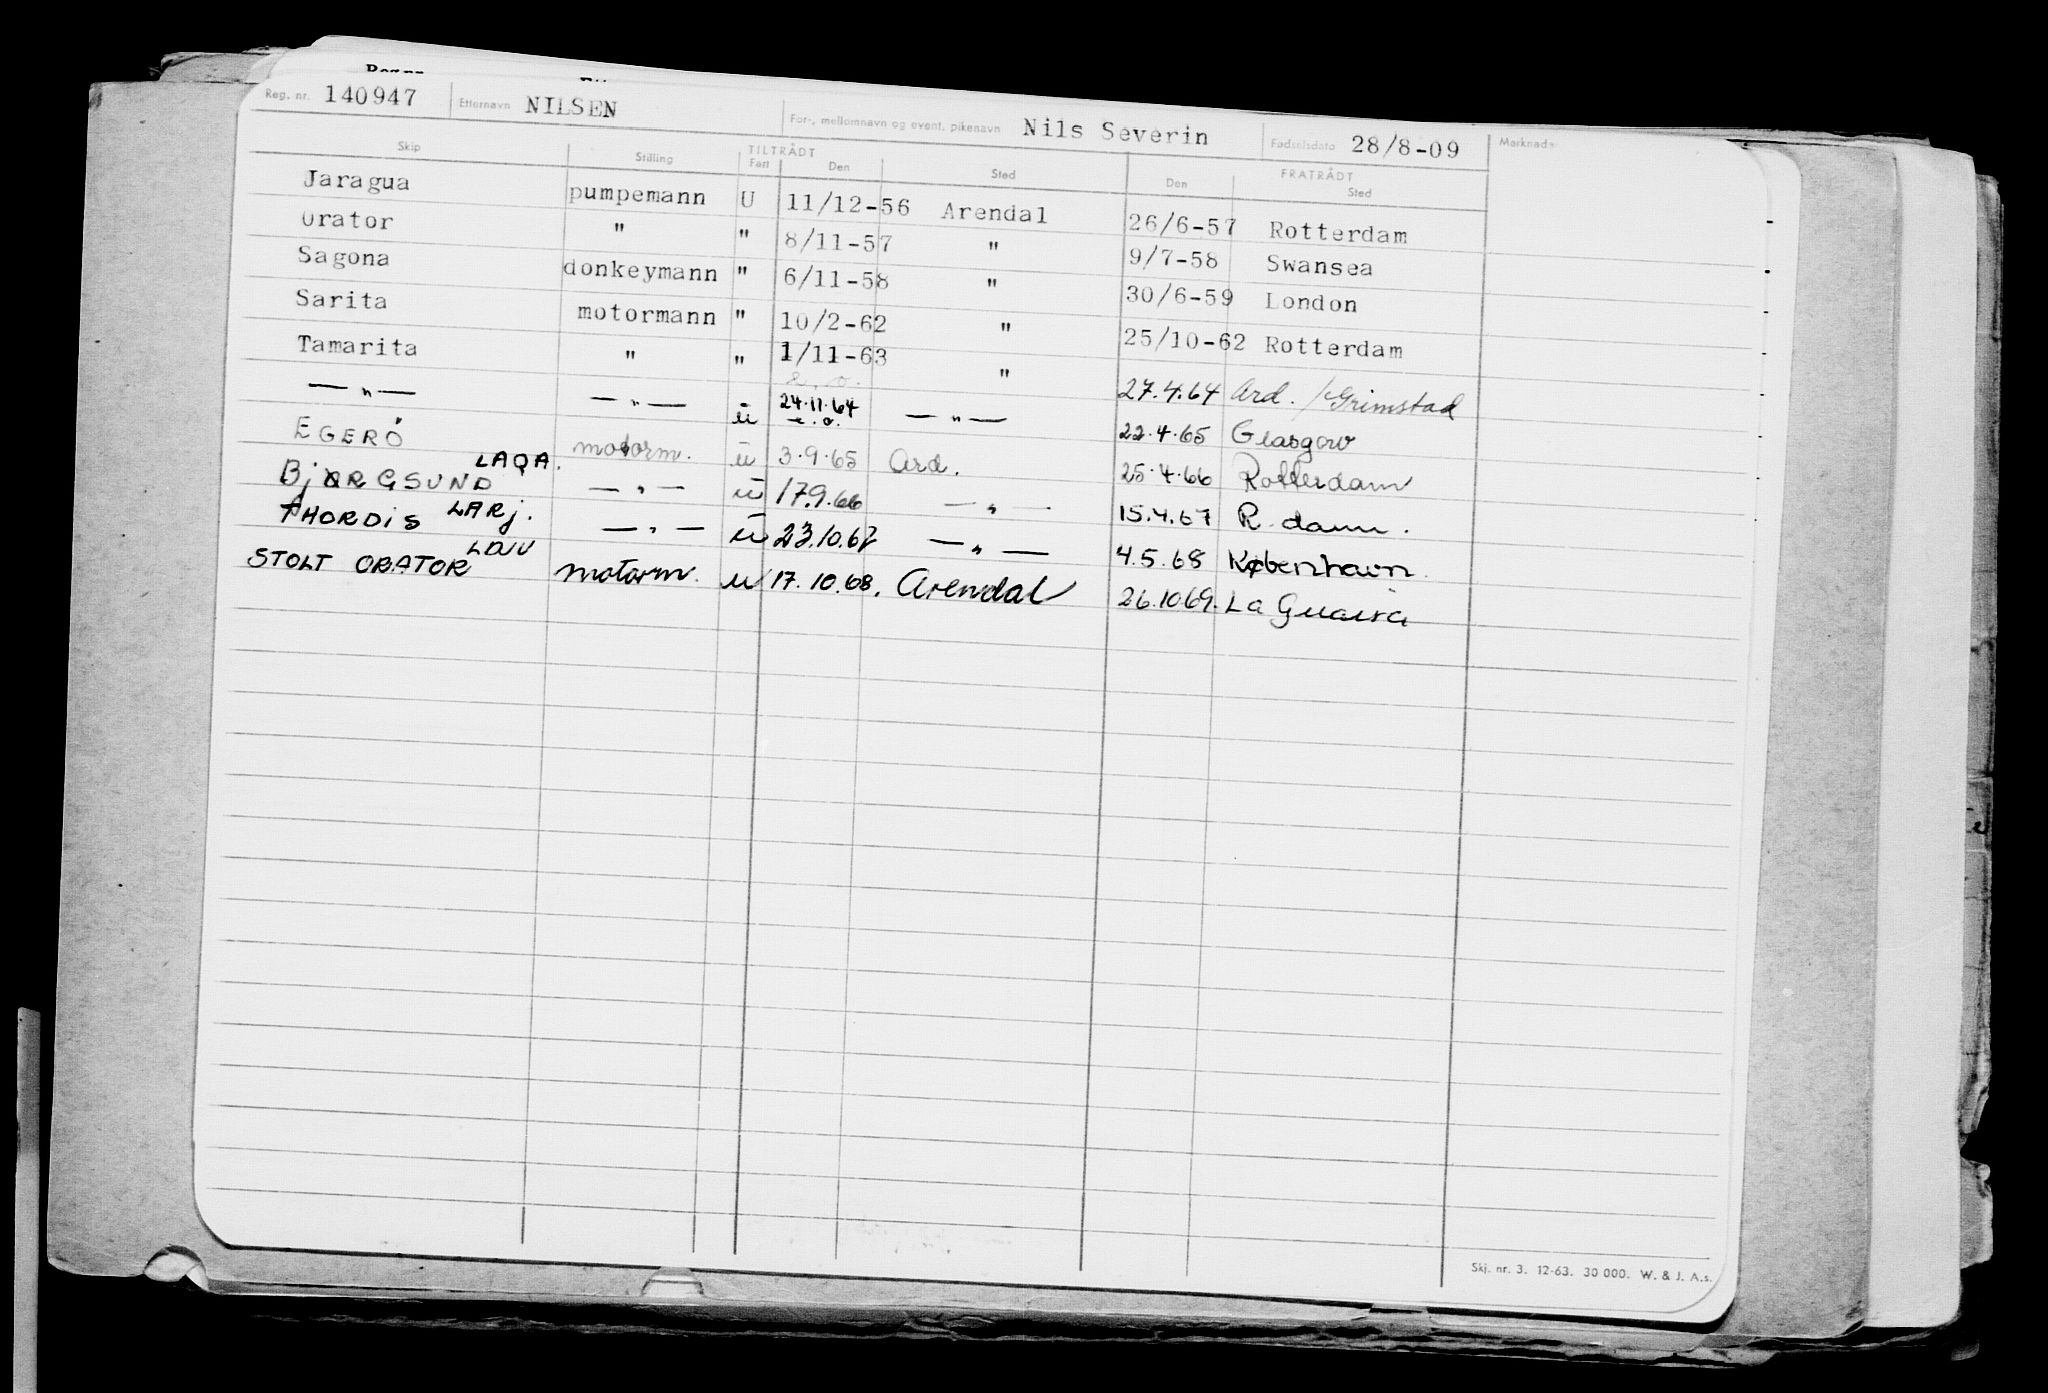 Reg. nr. 140947 Etternavn NILSEN For-, mellomnavn og event. pikenavn Nils Severin Fødselsdato 28/8-09 Merknader
Skip Stilling TILTRÅDT Fart Den Sted FRATRÅDT Den Sted
Jaragua pumpemann U 11/12-56 Arendal 26/6-57 Rotterdam
Orator " " 8/11-57 " 9/7-58 Swansea
Sagona donkeymann " 6/11-58 " 30/6-59 London
Sarita motormann " 10/2-62 " 25/10-62 Rotterdam
Tamarita " " 1/11-63 " 27.4.64 Ard. / Grimstad
— " — — " — u 24.11.64 — " — 22.4.65 Glasgow
EGERÖ motorm. u 3.9.65 Ard. 25.4.66 Rotterdam
BjØRGSUND LAQA. — " — u 17.9.66 — " — 15.4.67 R.dam.
THORDIS LARj. — " — u 23.10.67 — " — 4.5.68 København.
STOLT ORATOR motorm. u 17.10.68. Arendal 26.10.69. La Guaira
Skj. nr. 3. 12-63. 30 000. W. & J. A.s.